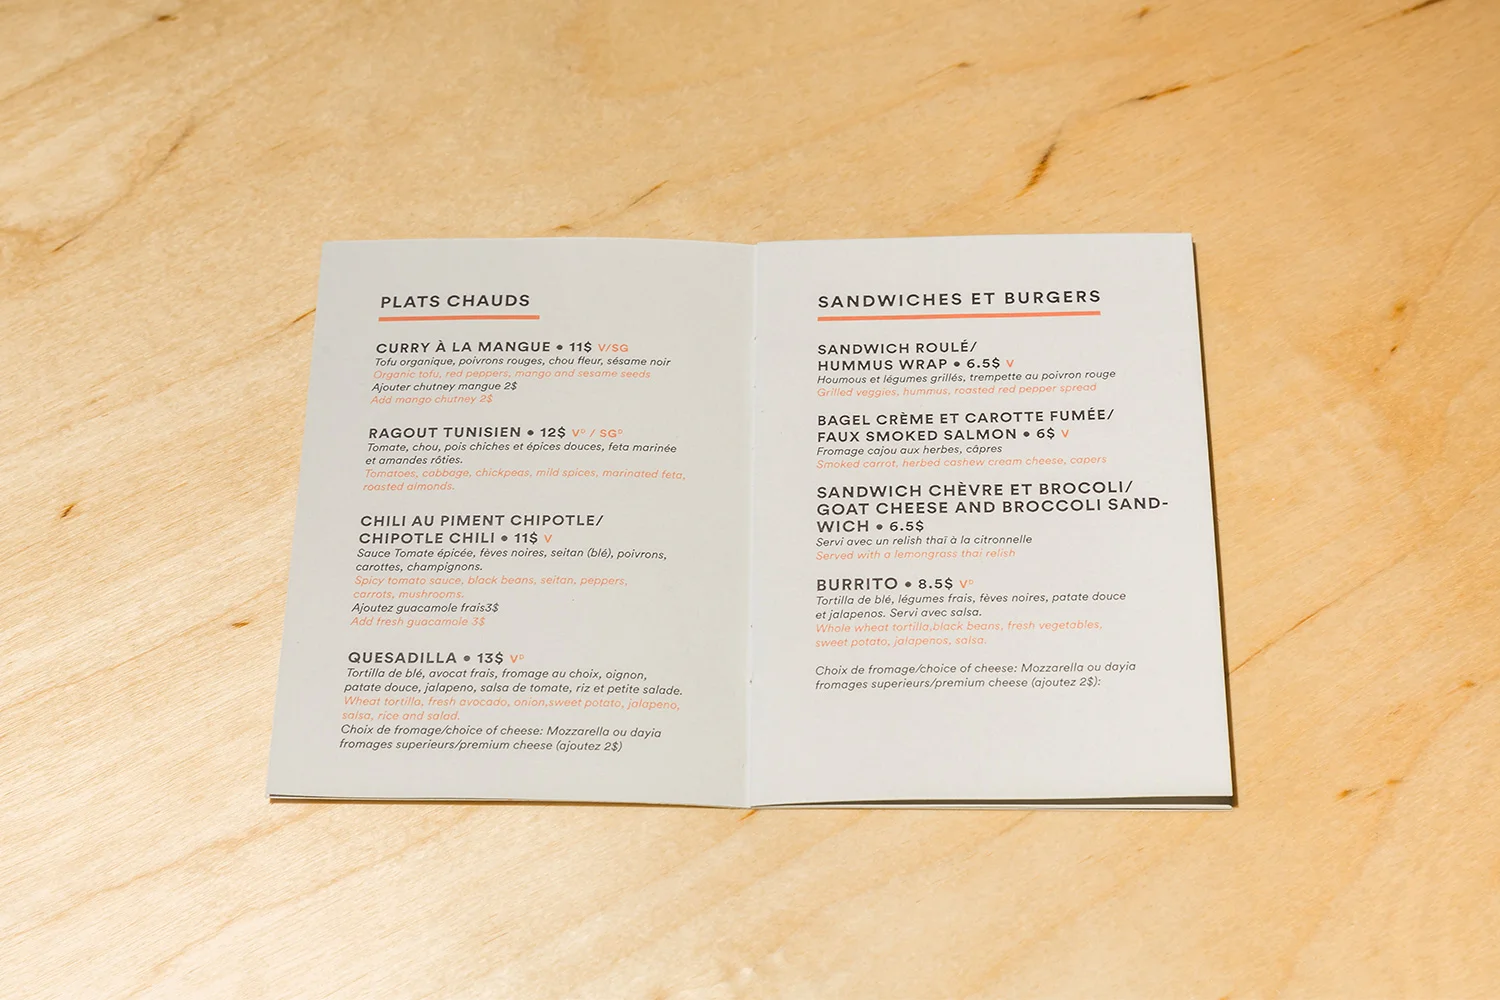 PLATS CHAUDS
CURRY À LA MANGUE • 11$ V/SG
Tofu organique, poivrons rouges, chou fleur, sésame noir
Organic tofu, red peppers, mango and sesame seeds
Ajouter chutney mangue 2$
Add mango chutney 2$
RAGOUT TUNISIEN • 12$ Vᴰ / SGᴰ
Tomate, chou, pois chiches et épices douces, feta marinée
et amandes rôties.
Tomatoes, cabbage, chickpeas, mild spices, marinated feta,
roasted almonds.
CHILI AU PIMENT CHIPOTLE/
CHIPOTLE CHILI • 11$ V
Sauce Tomate épicée, fèves noires, seitan (blé), poivrons,
carottes, champignons.
Spicy tomato sauce, black beans, seitan, peppers,
carrots, mushrooms.
Ajoutez guacamole frais3$
Add fresh guacamole 3$
QUESADILLA • 13$ Vᴰ
Tortilla de blé, avocat frais, fromage au choix, oignon,
patate douce, jalapeno, salsa de tomate, riz et petite salade.
Wheat tortilla, fresh avocado, onion,sweet potato, jalapeno,
salsa, rice and salad.
Choix de fromage/choice of cheese: Mozzarella ou dayia
fromages superieurs/premium cheese (ajoutez 2$)
SANDWICHES ET BURGERS
SANDWICH ROULÉ/
HUMMUS WRAP • 6.5$ V
Houmous et légumes grillés, trempette au poivron rouge
Grilled veggies, hummus, roasted red pepper spread
BAGEL CRÈME ET CAROTTE FUMÉE/
FAUX SMOKED SALMON • 6$ V
Fromage cajou aux herbes, câpres
Smoked carrot, herbed cashew cream cheese, capers
SANDWICH CHÈVRE ET BROCOLI/
GOAT CHEESE AND BROCCOLI SAND-
WICH • 6.5$
Servi avec un relish thaï à la citronnelle
Served with a lemongrass thai relish
BURRITO • 8.5$ Vᴰ
Tortilla de blé, légumes frais, fèves noires, patate douce
et jalapenos. Servi avec salsa.
Whole wheat tortilla,black beans, fresh vegetables,
sweet potato, jalapenos, salsa.
Choix de fromage/choice of cheese: Mozzarella ou dayia
fromages superieurs/premium cheese (ajoutez 2$):